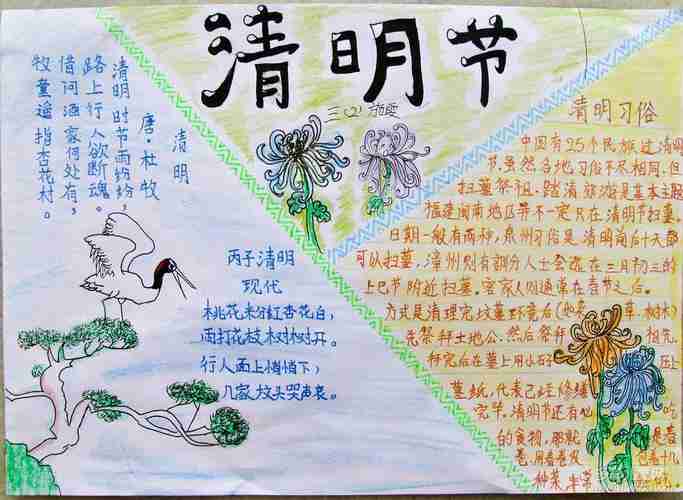 清明节
三(2)
清明
唐·杜牧
清明时节雨纷纷，
路上行人欲断魂。
借问酒家何处有，
牧童遥指杏花村。
丙子清明
现代
桃花粉红杏花白，
雨打花枝树树开。
行人面上悄悄下；
几家坟头哭声哀。
清明习俗
中国有25个民族过清明
节，虽然各地习俗不尽相同，但
扫墓祭祖、踏清旅游是基本主题
福建闽南地区并不一定只在清明节扫墓，
日期一般有两种，泉州习俗是清明前后十天都
可以扫墓，漳州则有部分人士会选在三月初三的
上巳节附近扫墓，客家人则通常在春节之后。
方式是清理完坟墓环境后(如 草、树木)
先祭拜土地公，然后祭拜 祖先，
拜完后在墓上用小石 压上
墓纸，代表已经修缮
完毕，清明节还有 吃
的食物，那就 是春
卷，用春卷皮 包卷十几
种菜